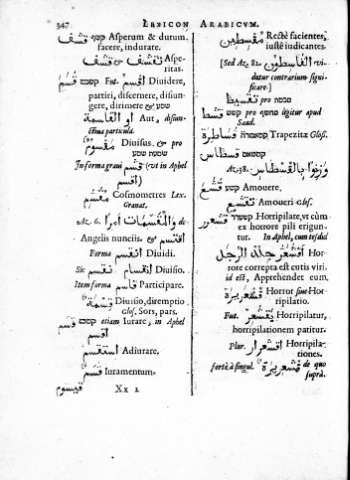 347 LEXICON ARABICVM.
قشف Asperum & durum.
facere, indurate.
تقشف & قشف Aspe-
ritas.
قسم Fut. اقسم Diuidere,
partiri, discernere, disiun-
gere, dirimere &
او القاسمة Aut, disiun-
ctiua particula.
مقسوم Diuisus. & pro
In forma graui قسم vt in Aphel
اقسم
مقسم Cosmometres Lex.
Granat.
Az. 6. والمقسمات امرا de
Angelis nunciis. & اقتسم
Forma انقسم Diuidi.
Sic انقسام Diuisio.
Item forma قاسم Participare.
قسمة Diuisio, diremptio
Glos. Sors, pars.
قسم etiam Iurare, in Aphel
اقسم
استقسم Adiurare.
قسم Iuramentum.
Xx 2
مقسطين Rectè facientes,
iustè iudicantes.
[Sed Az. 82. القاسطون vi-
detur contrarium signi-
ficare.]
تقسيط pro
قسط pro quo legitur apud
Saad.
Trapezita Glos.
قسطاس
Az. 38. وزنوا بالقسطاس
قشع Amouere.
تقشع Amoueri Glos.
قشعر Horripilare, vt cùm
ex horrore pili erigun-
tur. In Aphel, cum tesdid
اقشعر جلد الرجل Hor-
rore correpta est cutis viri.
id est, Apprehendet eum.
قشعريرة Horror siue Hor-
ripilatio.
Fut. يقشعر Horripilatur,
horripilationem patitur.
Plur. اقشعرار Horripila-
tiones.
fortè à singul. قشعريرة de quo
suprà.